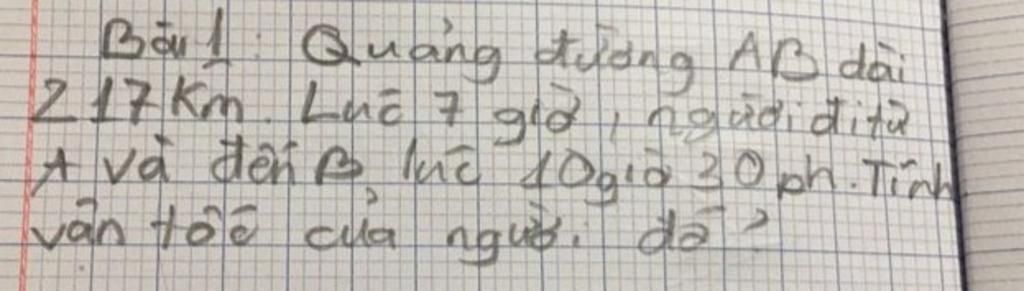 Bài 1: Quãng đường AB dài
217 Km. Lúc 7 giờ, người đi từ
A và đến B lúc 10 giờ 30 ph. Tính
vận tốc của người đó?